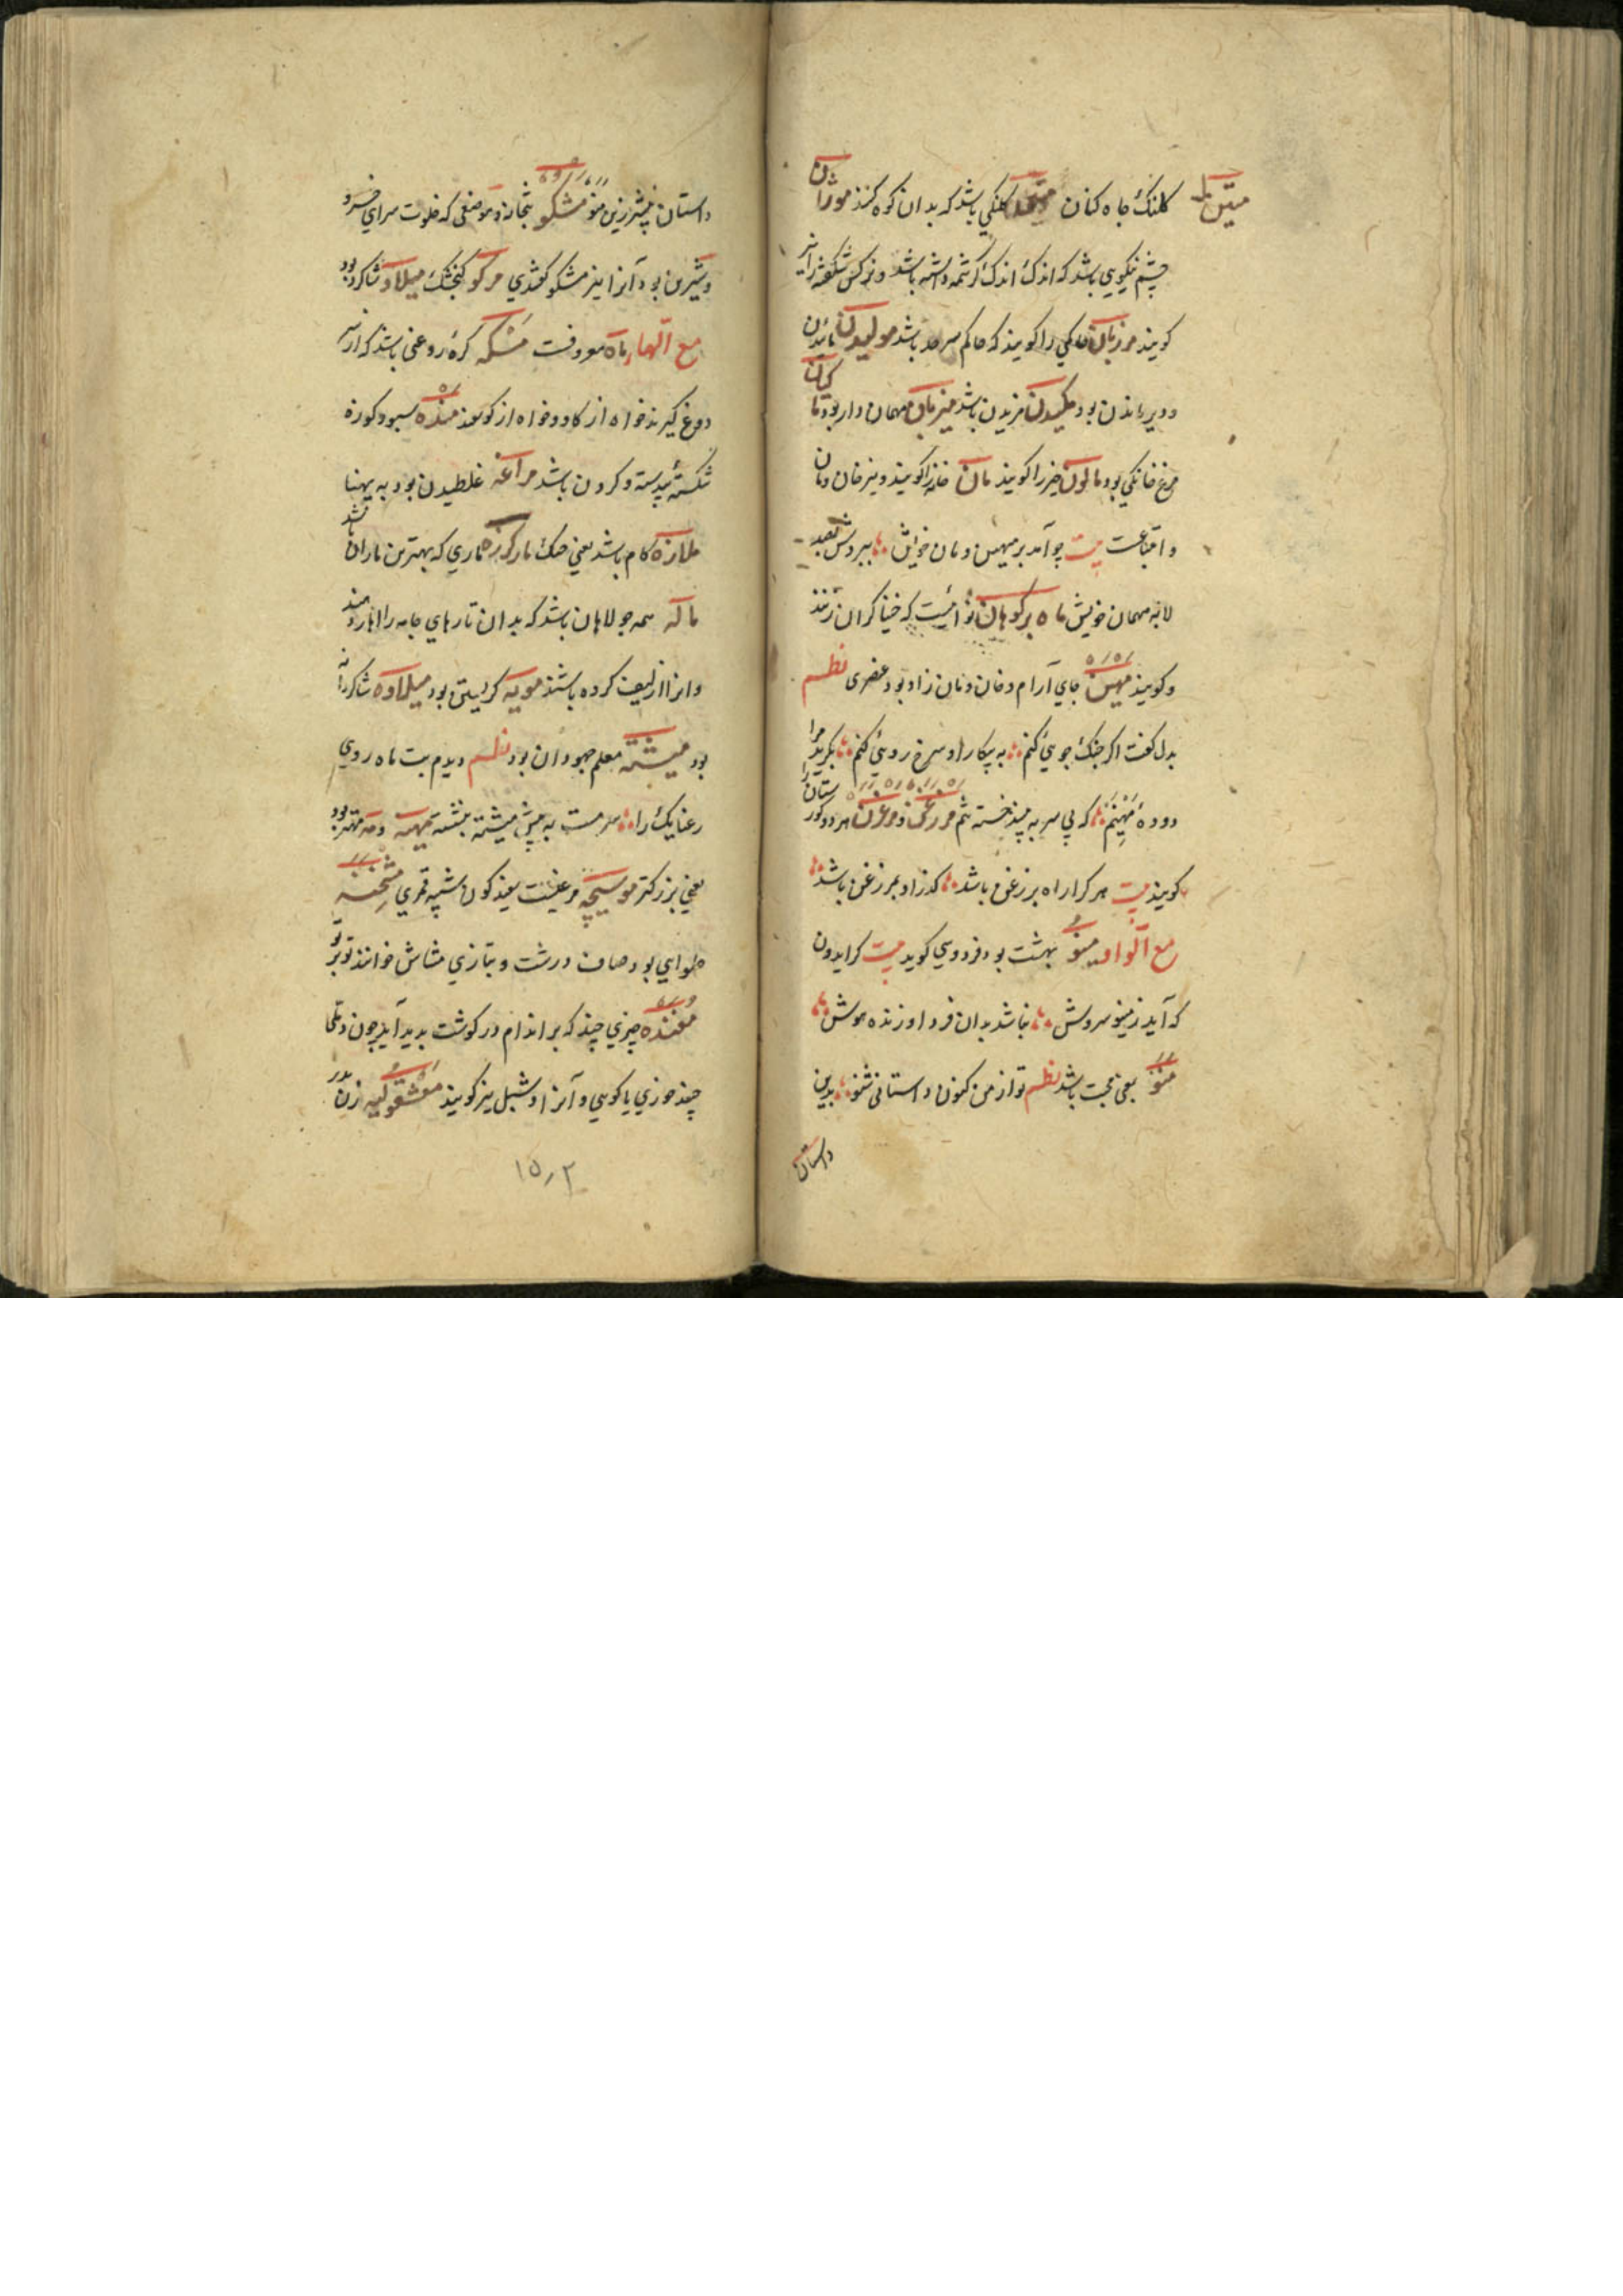 متین
کلنک چاه کنان کلنکی باشد که بدان کوه کنند موژان
چشم نیکویی باشد که اندک اندک کرشمه داشته باشد و نرکس شکفته را نیز
کویند مرزبان حاکمی را کویند که حاکم سرحد باشد مولیدن
و دیر ماندن بود مکیدن مزیدن باشد میزبان مهمان دار بود ماکیان
مرغ خانکی بود را کویند مان خانه را کویند و نیز خان و مان
بیت چو آمد بر میهن و مان خویش ببردش بصد
لابه مهمان خویش ماه بر کوهان نوائیست که خنیاکران زنند
و کویند میهن جای آرام و خان و مان زاد بود عنصری نظم
بدل کفت اکر جنک جویی کنم به پیکار او سرخ رویی کنم بکرید مرا
دوده میهنم که بی سر ببیند خسته تنم مرزغن و مرغزن هر دو کورستان را
کویند بیت هر کرا راه بر زغن باشد کذر او بمرزغن باشد
مع الواو مینو بهشت بود فردوسی کوید بیت کر ایدون
که آید ز مینو سروش نباشد بدان فر و اورند و هوش
منو یعنی باشد نظم تو از من کنون داستانی شنو بدین
داستان
داستان بیشتر زین منو مشکو بتخانه و موضعی که خلوت سرای خسرو
و شیرین بود آنرا نیز مشکو کفتندی مرکو کنجشک میلاو شاکرد بود
مع الهاء ماه معروفست مسکه کره روغنی باشد که از شیر
دوغ کیرند خواه از کاو و خواه از کوسفند منده سبو و کوزه
شکسته و کردن باشد مراغه غلطیدن بود به پهنا
ملازه کام باشد یعنی حنک مار کرزه ماری که بهترین ماران باشد
ماله سمه جولاهان باشد که بدان تارهای جامه را اهار دهند
و انرا از لیف کرده باشند مویه کریستن بود میلاوه شاکردانه
بود میشنه معلم جهودان بود نظم دیدم بت ماه روی
رعنایک را سرمست به پیش میشنه بنشسته مهینه و مه مهتر بود
یعنی بزرکتر موسیچه مرغیست سفید کون شبیه قمری
حلوایی بود صاف درشت و بتازی مشاش خوانند
مغنده چیزی چند که بر اندام در کوشت بدید آید چون دملها
چند جوزی یا کوبی و آنرا دشبل نیز کویند زن
۱۵۲